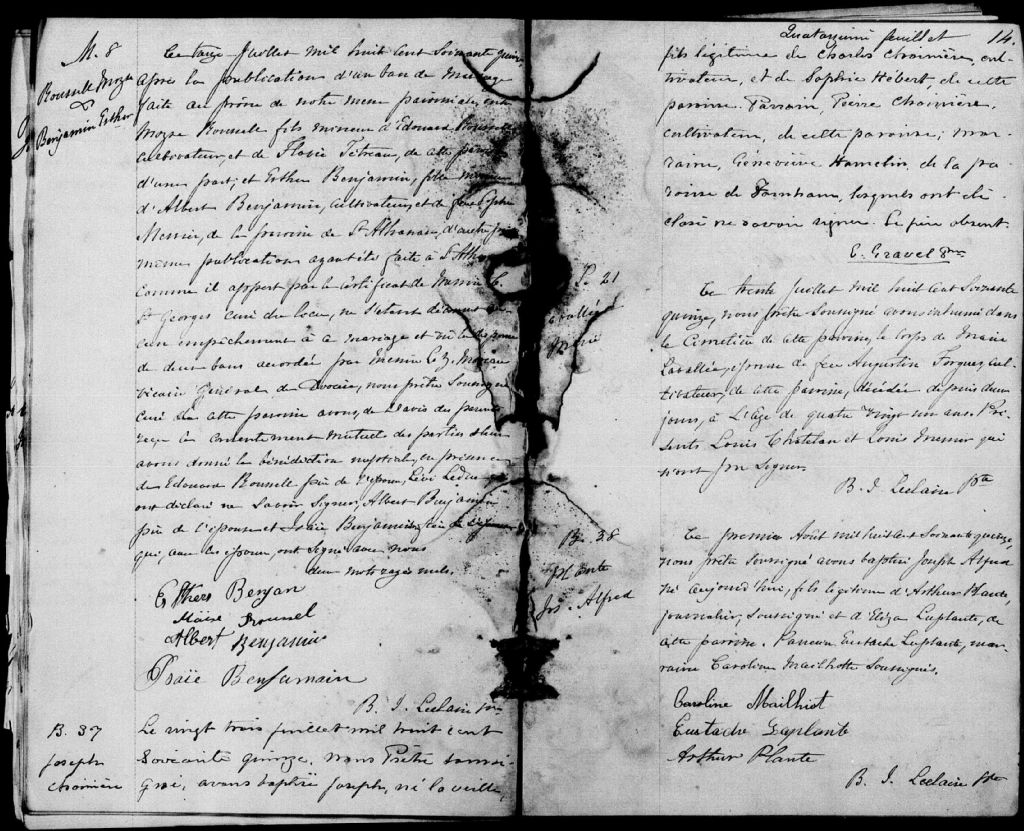 M. 8
Rousselle Moyse
&
Benjamin Esther
Ce treize Juillet mil huit cent soixante quinze
après la publication d'un ban de mariage
faite au prône de notre messe paroissiale, entre
Moyse Rousselle fils mineur d'Edouard Rousselle
cultivateur, et de Flavie Tétreau, de cette paroisse
d'une part; et Esther Benjamin, fille mineure
d'Albert Benjamin, cultivateur, et de feue Sophie
Messier, de la paroisse de St Athanase, d'autre part
même publication ayant été faite à St Athanase
comme il appert par le certificat de Messire
St Georges curé du lieu, ne s'étant découvert au-
cun empêchement à ce mariage et vu la dispense
de deux bans accordée par Messire L. Z. Moreau
Vicaire Général du Diocèse, nous prêtre soussigné
curé de cette paroisse avons, de l'avis des parents
reçu le consentement mutuel des parties & leur
avons donné la bénédiction nuptiale, en présence
de Edouard Rousselle père de l'époux, Lévi Leduc
ont déclaré ne savoir signer, Albert Benjamin
père de l'épouse et Isaïe Benjamin
qui, avec les époux, ont signé avec nous
deux mots rayés nuls.
Esthers Benjan
Moïse Roussel
Albert Benjamin
Isaïe Benjamain
B. J. Leclaire ptre
B. 37
Joseph
Choinière
Le vingt trois juillet mil huit cent
soixante quinze, nous Prêtre soussi-
gné, avons baptisé Joseph, né la veille,
Quatorzième feuillet 14.
fils légitime de Charles Choinière, cul-
tivateur, et de Sophie Hébert, de cette
paroisse. Parrain, Pierre Choinière,
cultivateur, de cette paroisse; mar-
raine, Geneviève Hamelin, de la pa-
roisse de Farnham, lesquels ont dé-
claré ne savoir signer. Le père absent.
E. Gravel
S. 21
Lavallée
Marie
Le trente Juillet mil huit cent soixante
quinze, nous prêtre soussigné avons inhumé dans
le Cimetière de cette paroisse, le corps de Marie
Lavallée, épouse de feu Augustin Forgues, cul-
tivateur, de cette paroisse, décédée depuis deux
jours, à l'âge de quatre vingt un ans. Pré-
sents Louis Chatelan et Louis Messier qui
n'ont pu signer.
B. J. Leclaire ptre
B. 38
Plante
Jos. Alfred
Ce premier Août mil huit cent soixante quinze,
nous prêtre soussigné avons baptisé Joseph Alfred
né aujourd'hui, fils légitime d'Arthur Plante,
journalier, soussigné et d'Eliza Laplante, de
cette paroisse. Parrain Eustache Laplante, mar-
raine Caroline Mailhotte soussignés.
Caroline Mailhiot
Eustache Laplante
Arthur Plante
B. J. Leclaire Ptre